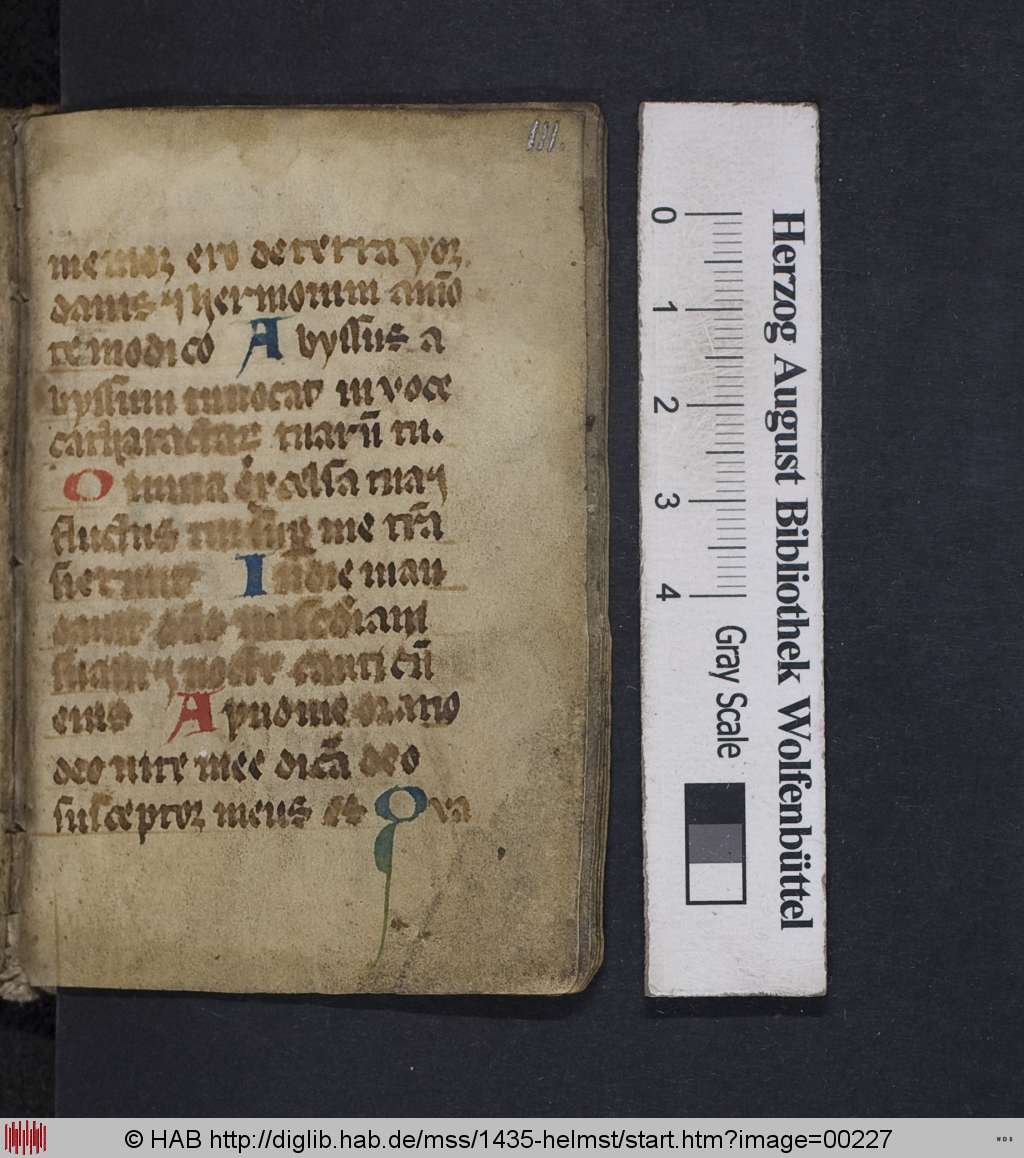 111.
memor ero de terra yor
danis ⁊ hermonim a mo͞
te modico Abyssus a
byssum inuocat in voce
catharactar tuarū tu.
Omnia excelsa tua ⁊
fluctus tui suꝑ me trā
sierunt In die man
dauit dn̄s misc̄diam
suam ⁊ nocte canticū
eius Apud me oratio
deo uite mee dicā deo
susceptor meus es Qua
Herzog August Bibliothek Wolfenbüttel
0 1 2 3 4 Gray Scale
© HAB http://diglib.hab.de/mss/1435-helmst/start.htm?image=00227